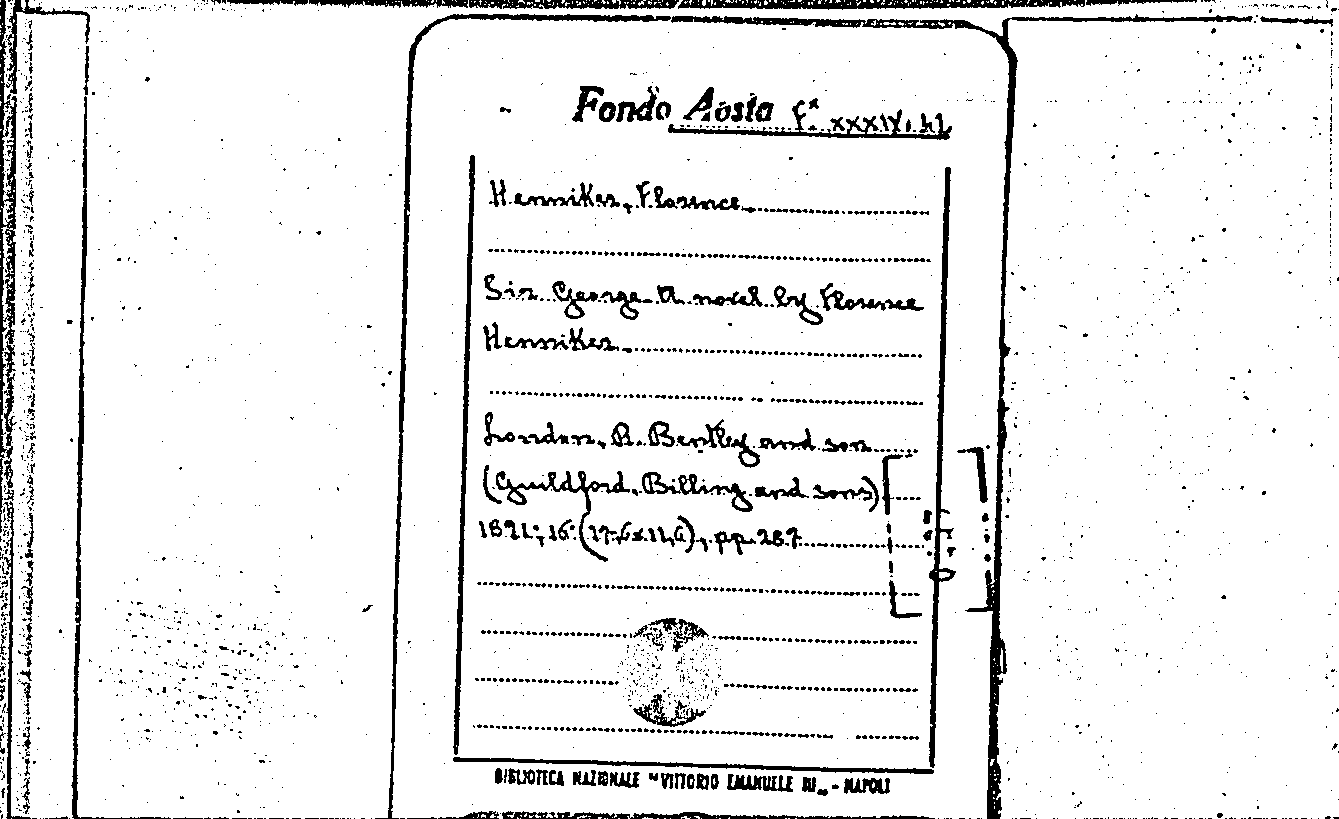 Fondo Aosta F.ª XXXIX.41
Henniker, Florence
Sir George. A novel by Florence
Henniker
London, R. Bentley and son
(Guildford, Billing and sons)
1891; 16º (17,6x11,6), pp. 287
BIBLIOTECA NAZIONALE "VITTORIO EMANUELE III„ - NAPOLI